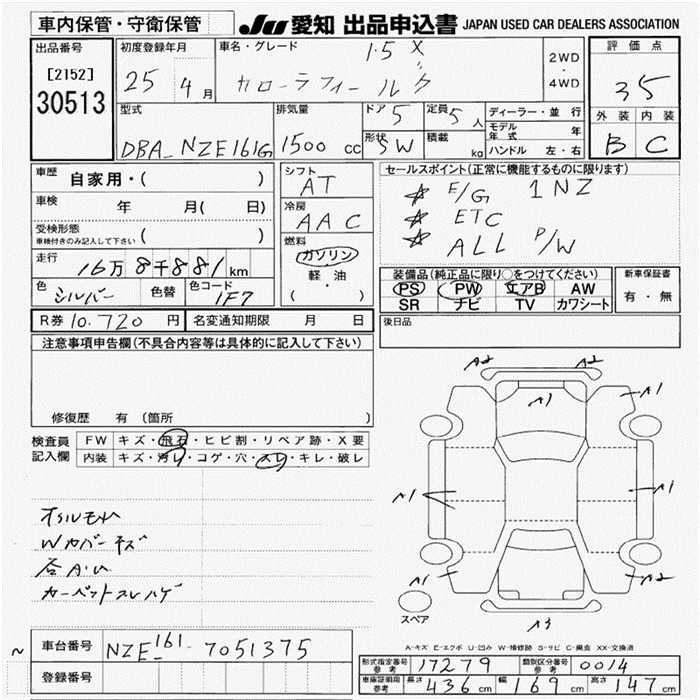 車内保管・守衛保管
JU 愛知 出品申込書 JAPAN USED CAR DEALERS ASSOCIATION
出品番号
[2152]
30513
初度登録年月
25 4月
車名・グレード
1.5 X
カローラフィールダ
2WD
・
4WD
評価点
35
外装 内装
B C
型式
DBA-NZE161G
排気量
1500 cc
ドア 5
定員 5人
形状 SW
積載 kg
ディーラー・並行
モデル年式 年
ハンドル 左・右
車歴 自家用・( )
車検 年 月( 日)
受検形態
車検付きのみ記入して下さい ( )
走行 16万8千881km
色 シルバー 色替 色コード 1F7
シフト
AT
冷房
AAC
燃料
ガソリン
・
軽油
( )
セールスポイント(正常に機能するものに限ります)
☆ E/G 1NZ
☆ ETC
☆ ALL P/W
装備品(純正品に限り○をつけてください)
PS PW エアB AW
SR ナビ TV カワシート
新車保証書
有・無
R券 10,720 円 名変通知期限 月 日
後日品
注意事項申告欄(不具合内容等は具体的に記入して下さい)
修復歴 有 (箇所 )
検査員記入欄
FW キズ・飛石・ヒビ割・リペア跡・X要
内装 キズ・汚レ・コゲ・穴・スレ・キレ・破レ
Wカバーキズ
カーペットスレハゲ
A2 A2
A1 A1
A1 A1
A1 A2
A3
スペア
A-キズ E-エクボ U-凹み W-補修跡 S-サビ C-腐食 XX-交換済
~
車台番号 NZE161-7051375
登録番号
形式指定番号 参考 17279 類別区分番号 参考 0014
車庫証明用 参考 長さ 436cm 幅 169cm 高さ 147cm